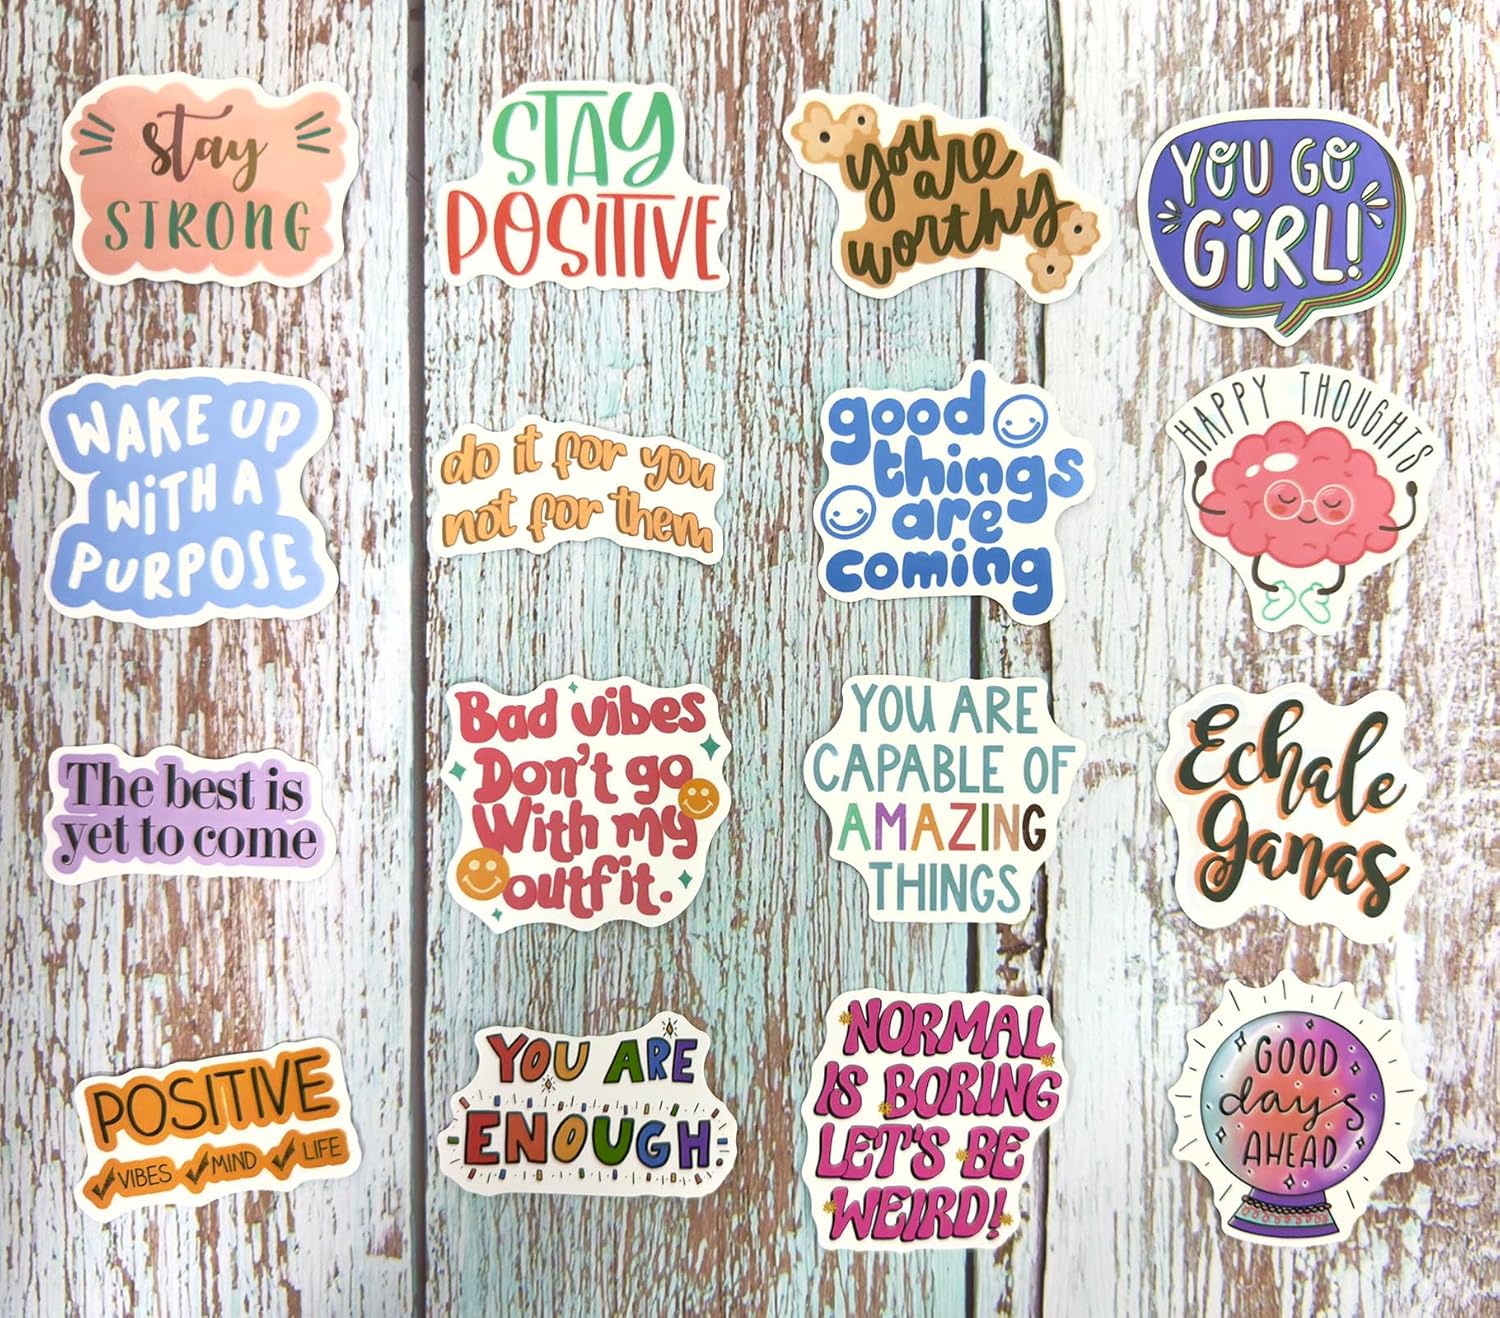 stay
STRONG
STAY
POSITIVE
you are
worthy
YOU GO
GiRL!
WAKE UP
WiTH A
PURPOSE
do it for you
not for them
good
things
are
coming
HAPPY THOUGHTS
The best is
yet to come
Bad vibes
Don't go
With my
outfit.
YOU ARE
CAPABLE OF
AMAZING
THINGS
Echale
ganas
POSITIVE
VIBES MIND LIFE
YOU ARE
ENOUGH.
NORMAL
IS BORING
LET'S BE
WEIRD!
GOOD
days
AHEAD